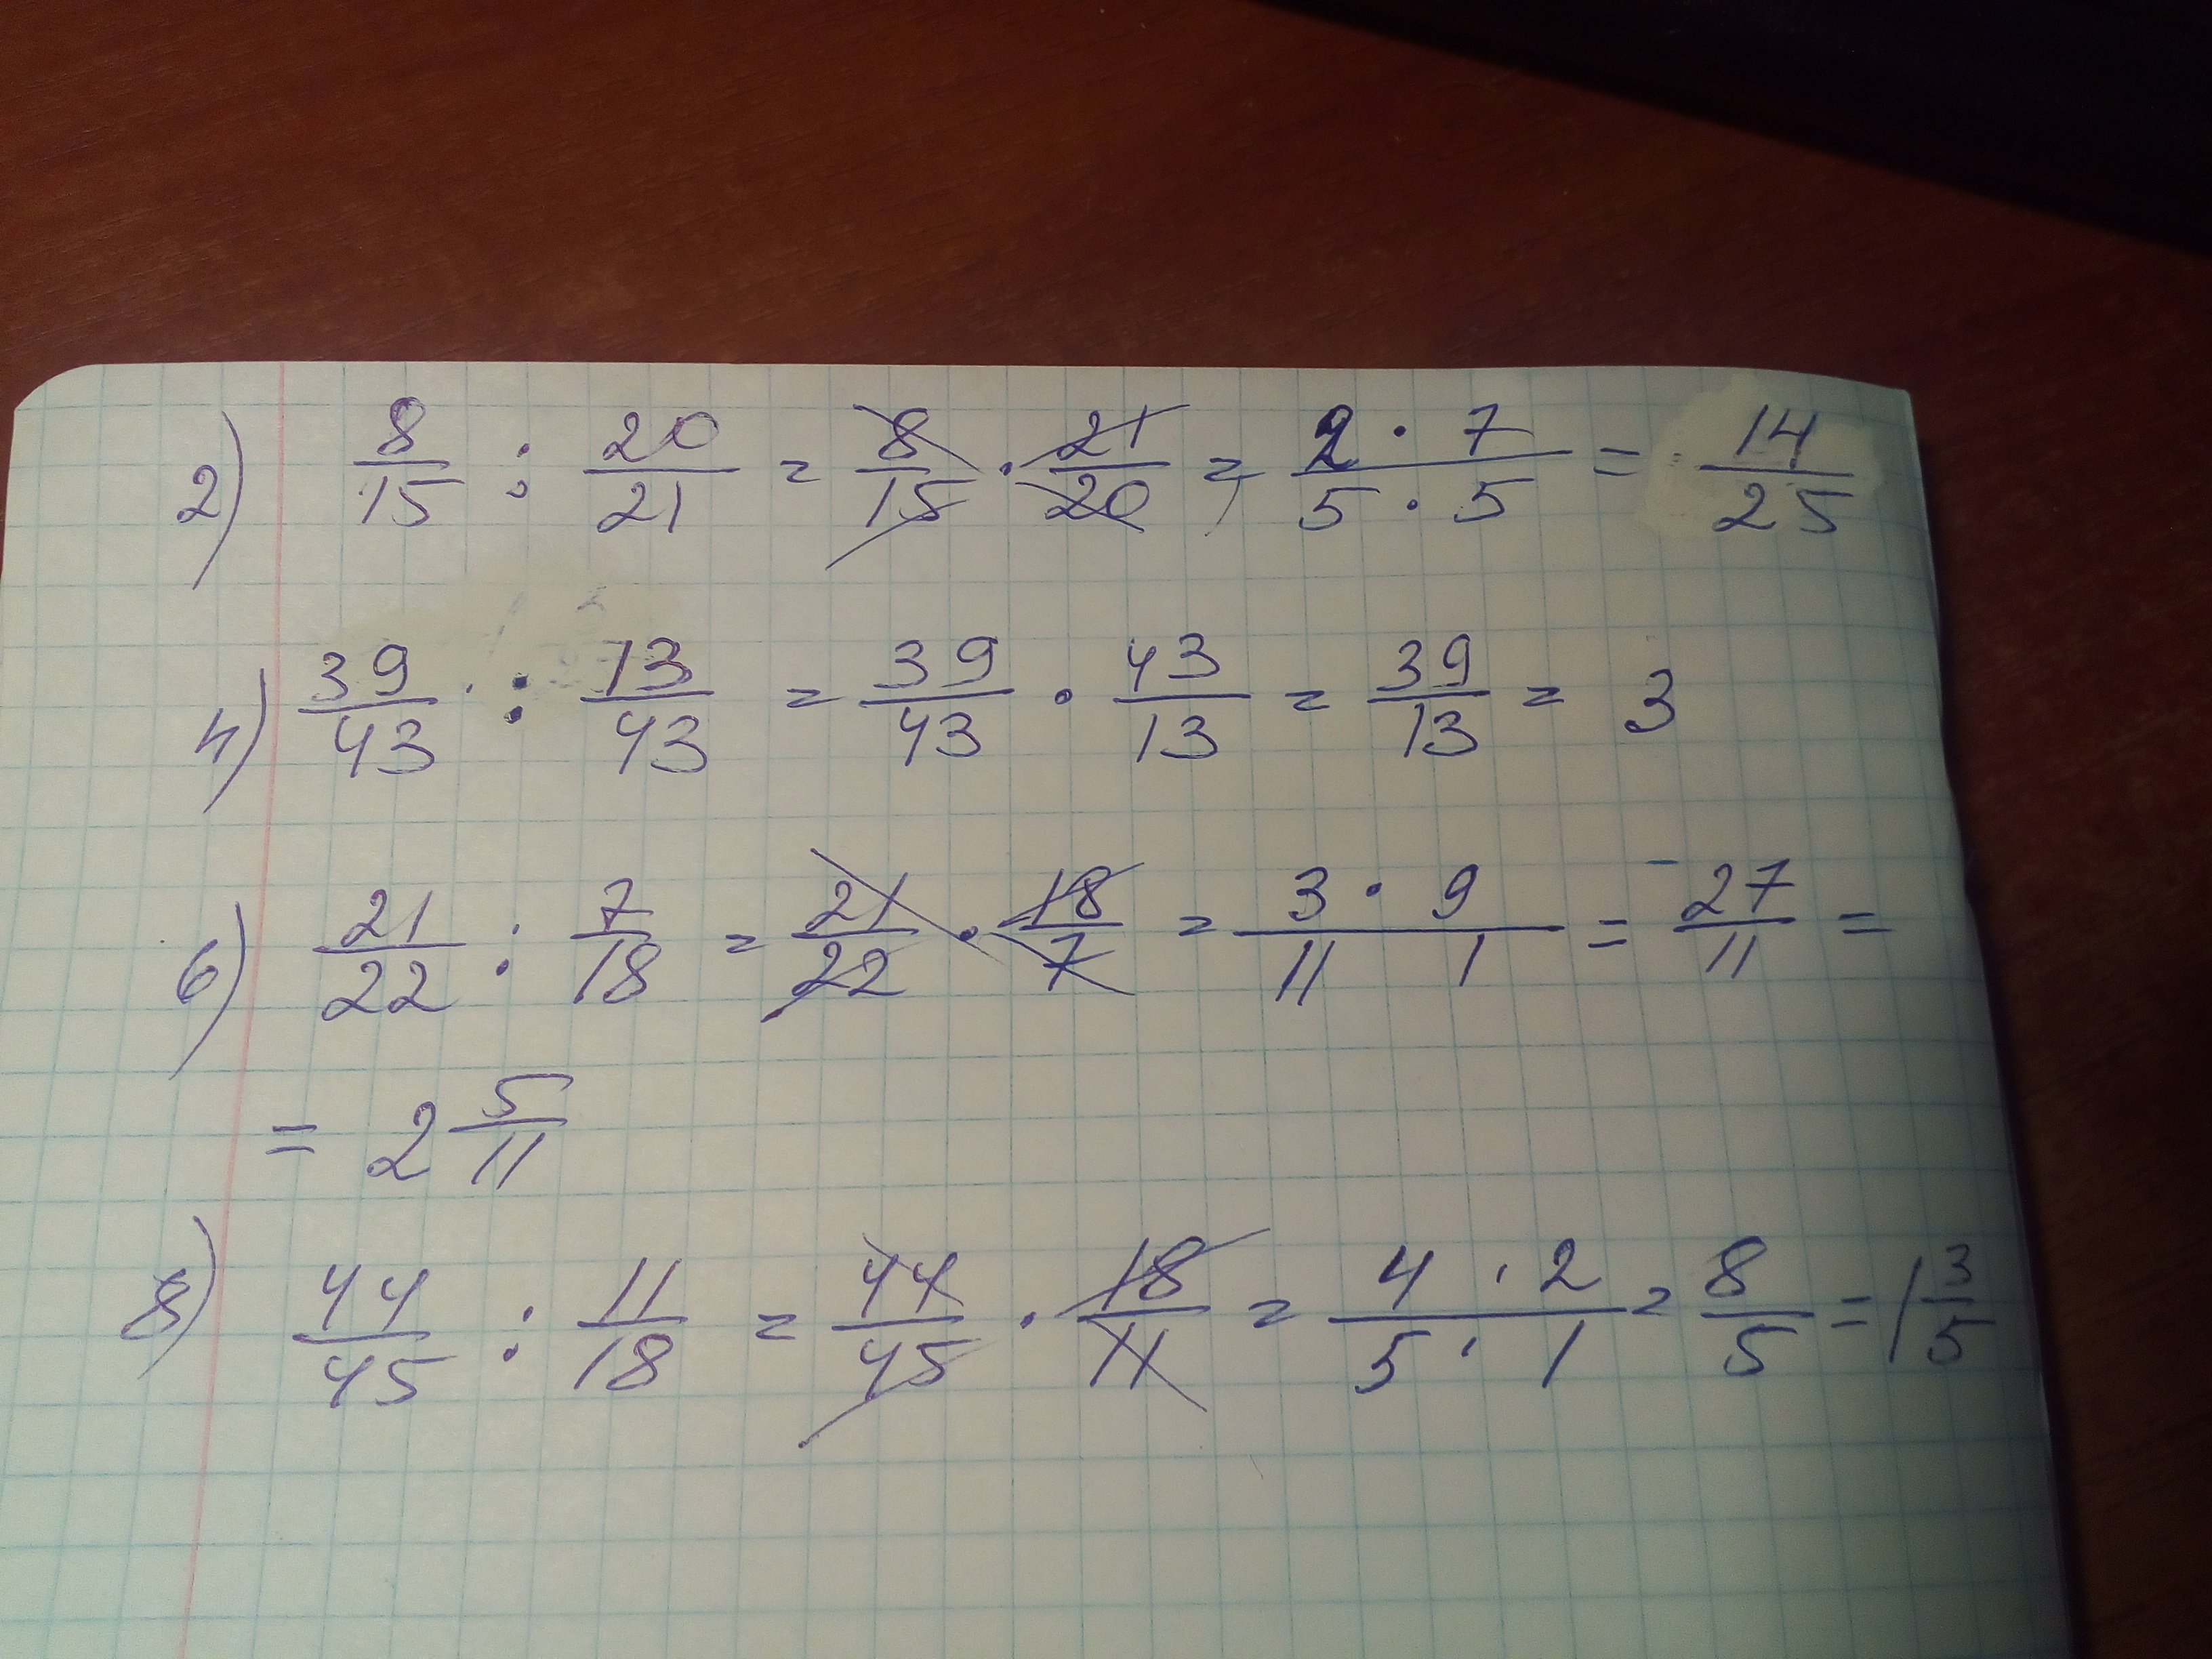 2) 8/15 : 20/21 = 8/15 · 21/20 = 2 · 7/5 · 5 = 14/25
4) 39/43 : 13/43 = 39/43 · 43/13 = 39/13 = 3
6) 21/22 : 7/18 = 21/22 · 18/7 = 3 · 9/11 1 = 27/11 =
= 2 5/11
8) 44/45 : 11/18 = 44/45 · 18/11 = 4 · 2/5 · 1 = 8/5 = 1 3/5